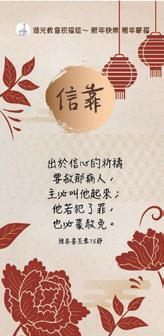 湖光教會祝福您～ 新年快樂 闔年蒙福
信靠
出於信心的祈禱
要救那病人，
主必叫他起來；
他若犯了罪，
也必蒙赦免。
雅各書五章15節